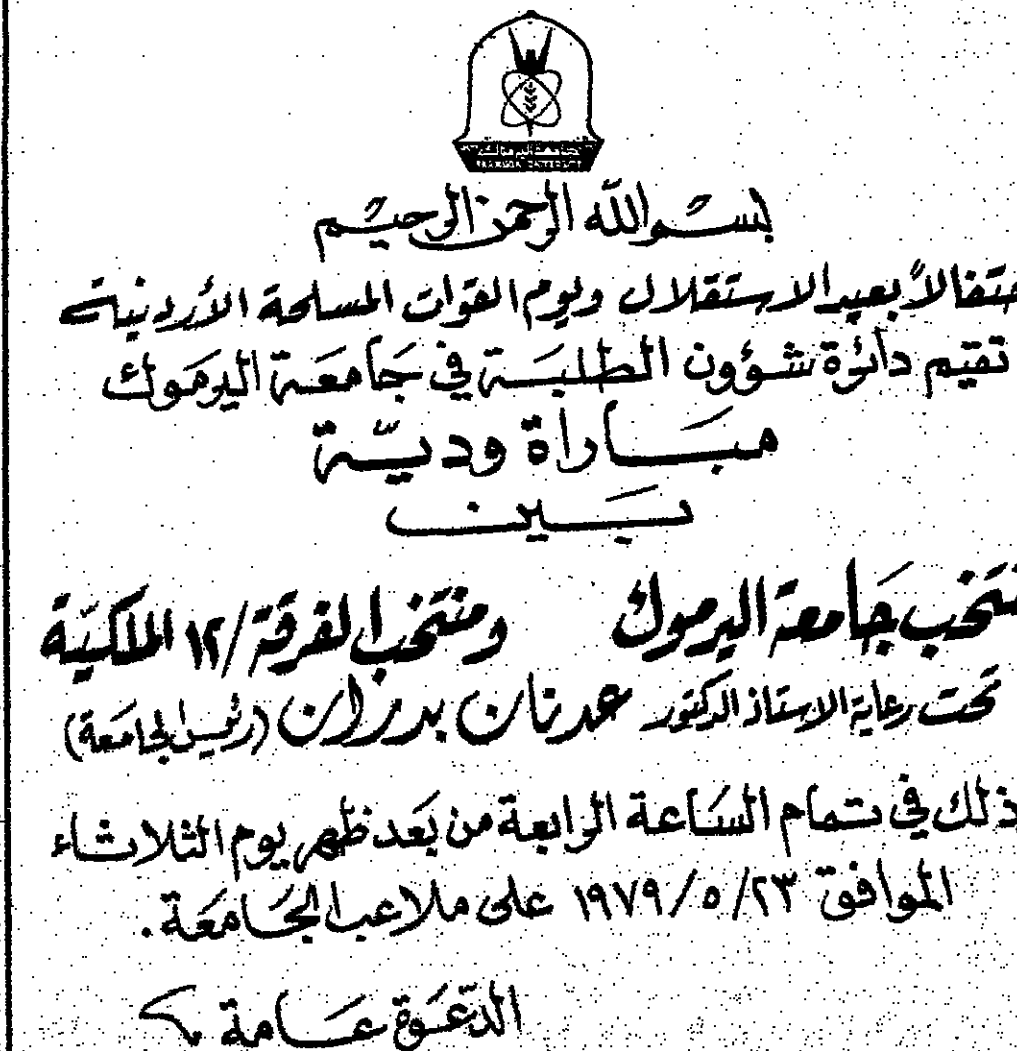 بسم الله الرحمن الرحيم
حتفالاً بعيد الاستقلال ويوم القوات المسلحة الأردنية
تقيم دائرة شؤون الطلبة في جامعة اليرموك
مباراة ودية
بين
نتخب جامعة اليرموك ومنتخب الفرقة/١٢ الملكية
تحت رعاية الاستاذ الدكتور عدنان بدران (رئيس الجامعة)
ذلك في تمام الساعة الرابعة من بعد ظهر يوم الثلاثاء
الموافق ٢٣/٥/١٩٧٩ على ملاعب الجامعة.
الدعوة عامة